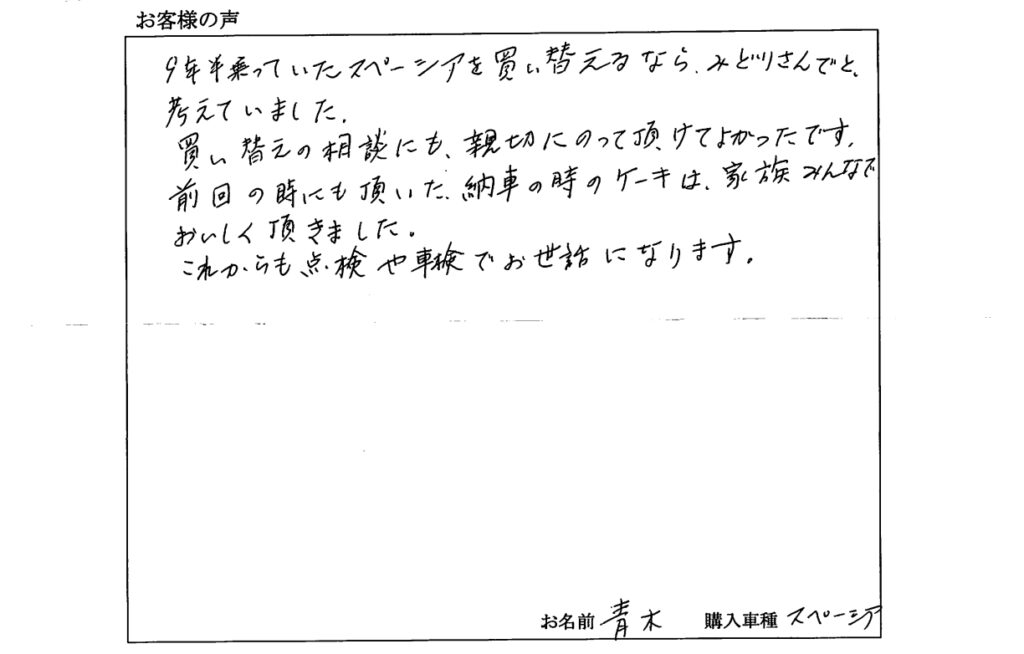 お客様の声
9年半乗っていたスペーシアを買い替えるなら、みどりさんでと、
考えていました。
買い替えの相談にも、親切にのって頂けてよかったです。
前回の時にも頂いた、納車の時のケーキは、家族みんなで
おいしく頂きました。
これからも点検や車検でお世話になります。
お名前 青木 購入車種 スペーシア